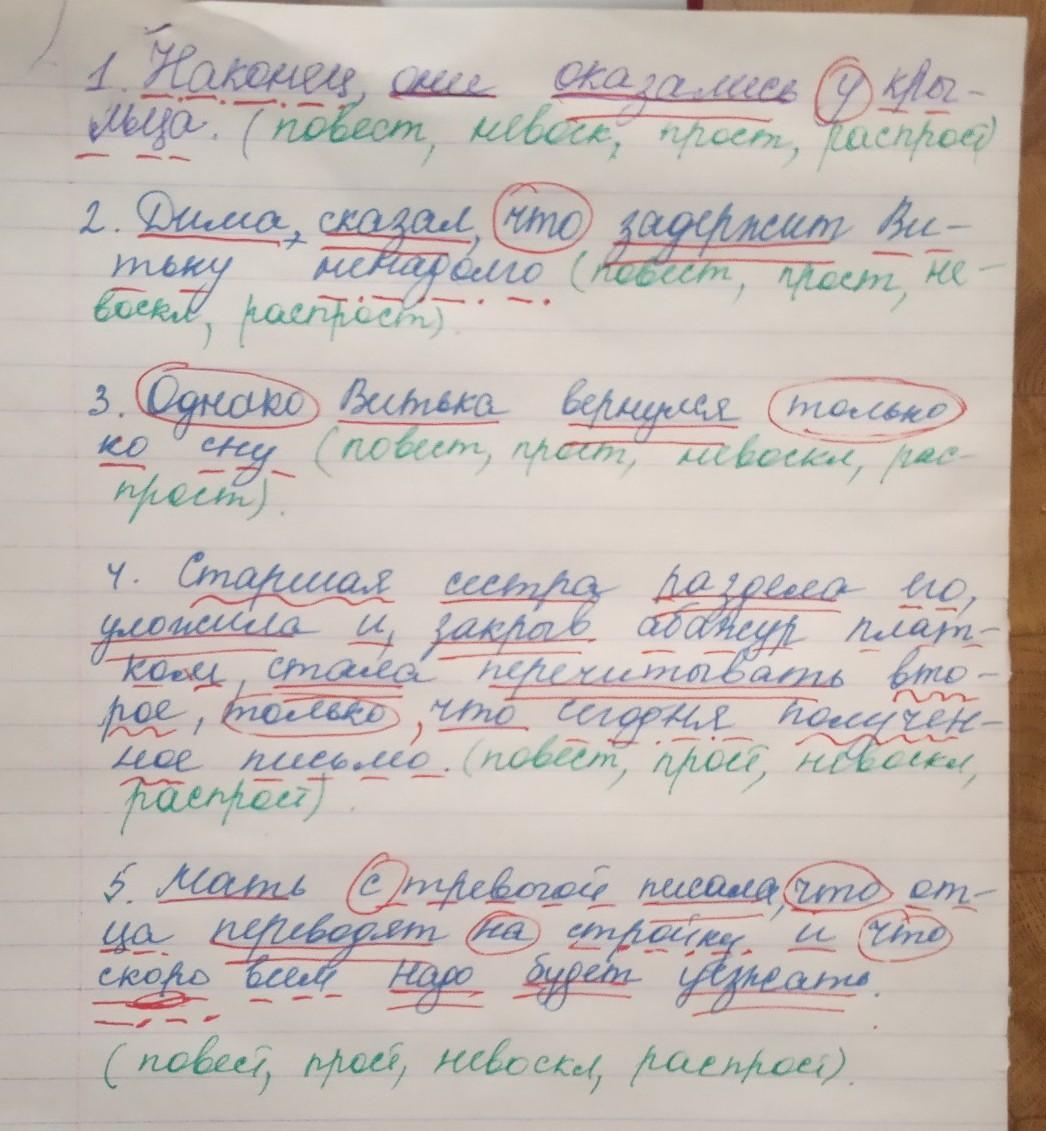 1. Наконец, они оказались у кры-
льца. (повест, невоск, прост, распрост)
2. Дима, сказал, что задержит Ви-
тьку ненадолго (повест, прост, не-
воскл, распрост).
3. Однако Витька вернулся только
ко сну (повест, прост, невоскл, рас-
прост).
4. Старшая сестра раздела его,
уложила и, закрыв абажур плат-
ком, стала перечитывать вто-
рое, только, что сегодня получен-
ное письмо. (повест, прост, невоскл,
распрост).
5. Мать с тревогой писала, что от-
ца переводят на стройку и что
скоро всем надо будет уезжать.
(повест, прост, невоскл, распрост).